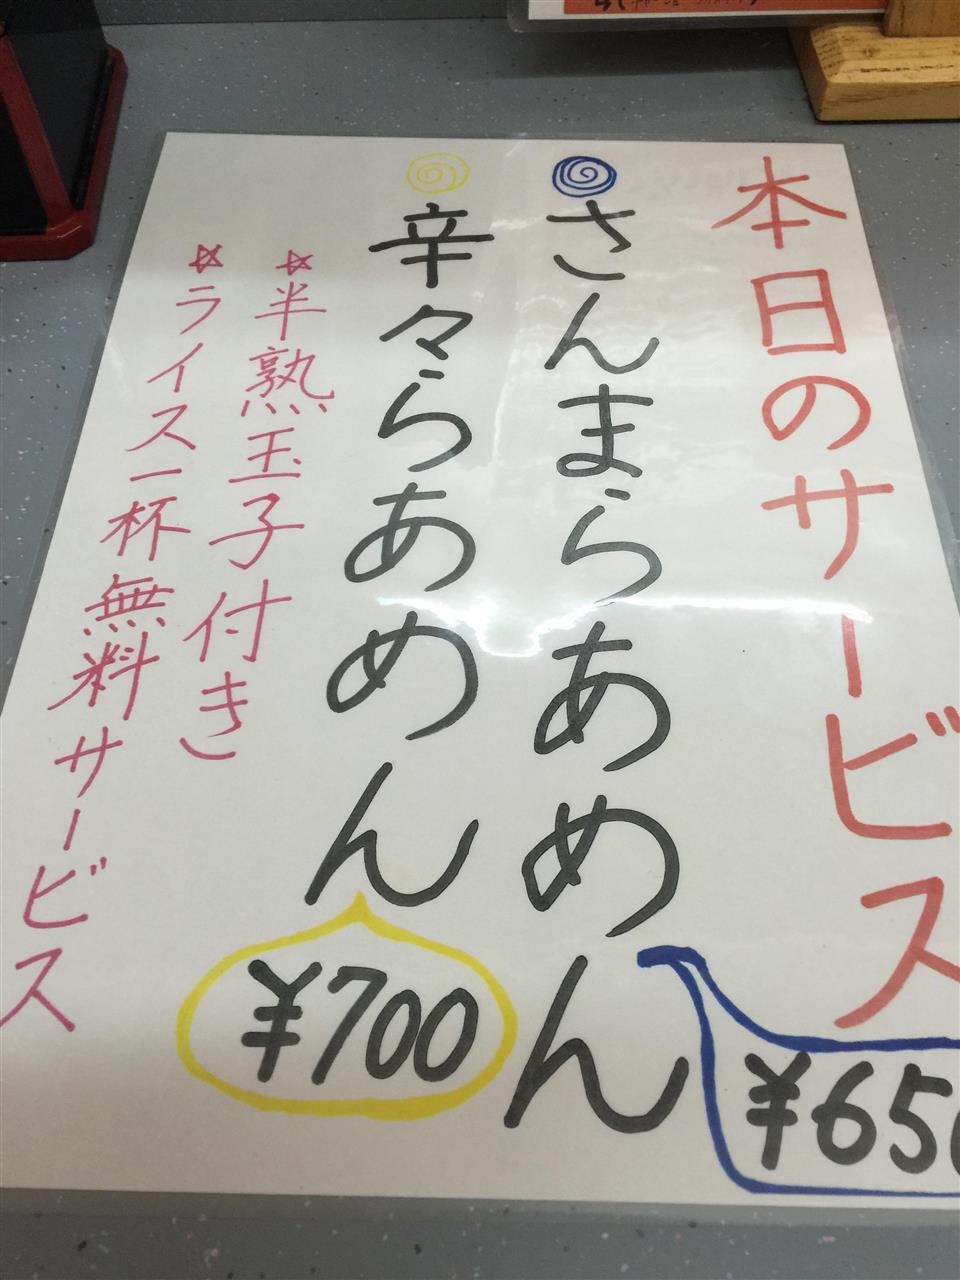 本日のサービス
さんまらあめん
¥650
辛々らあめん
¥700
☆半熟玉子付き
☆ライス一杯無料サービス